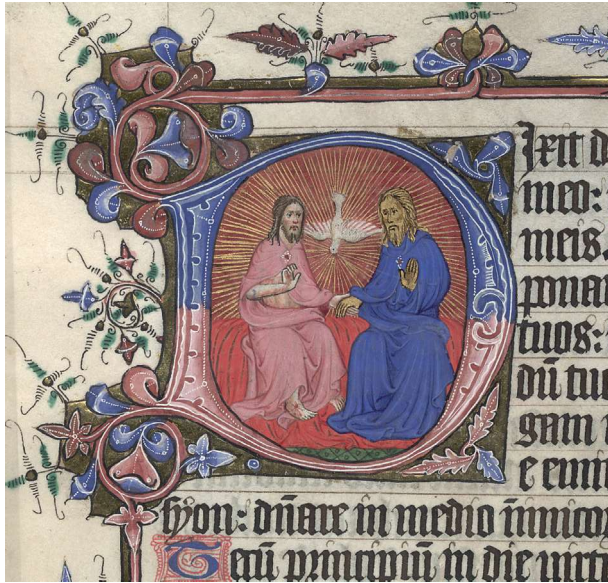 Dixit d
meo:
meis.
ponam
tuos:
dū tue
gam
e emitt
syon: dn̄are in medio inimicor
Tecū principiū in die uirtu